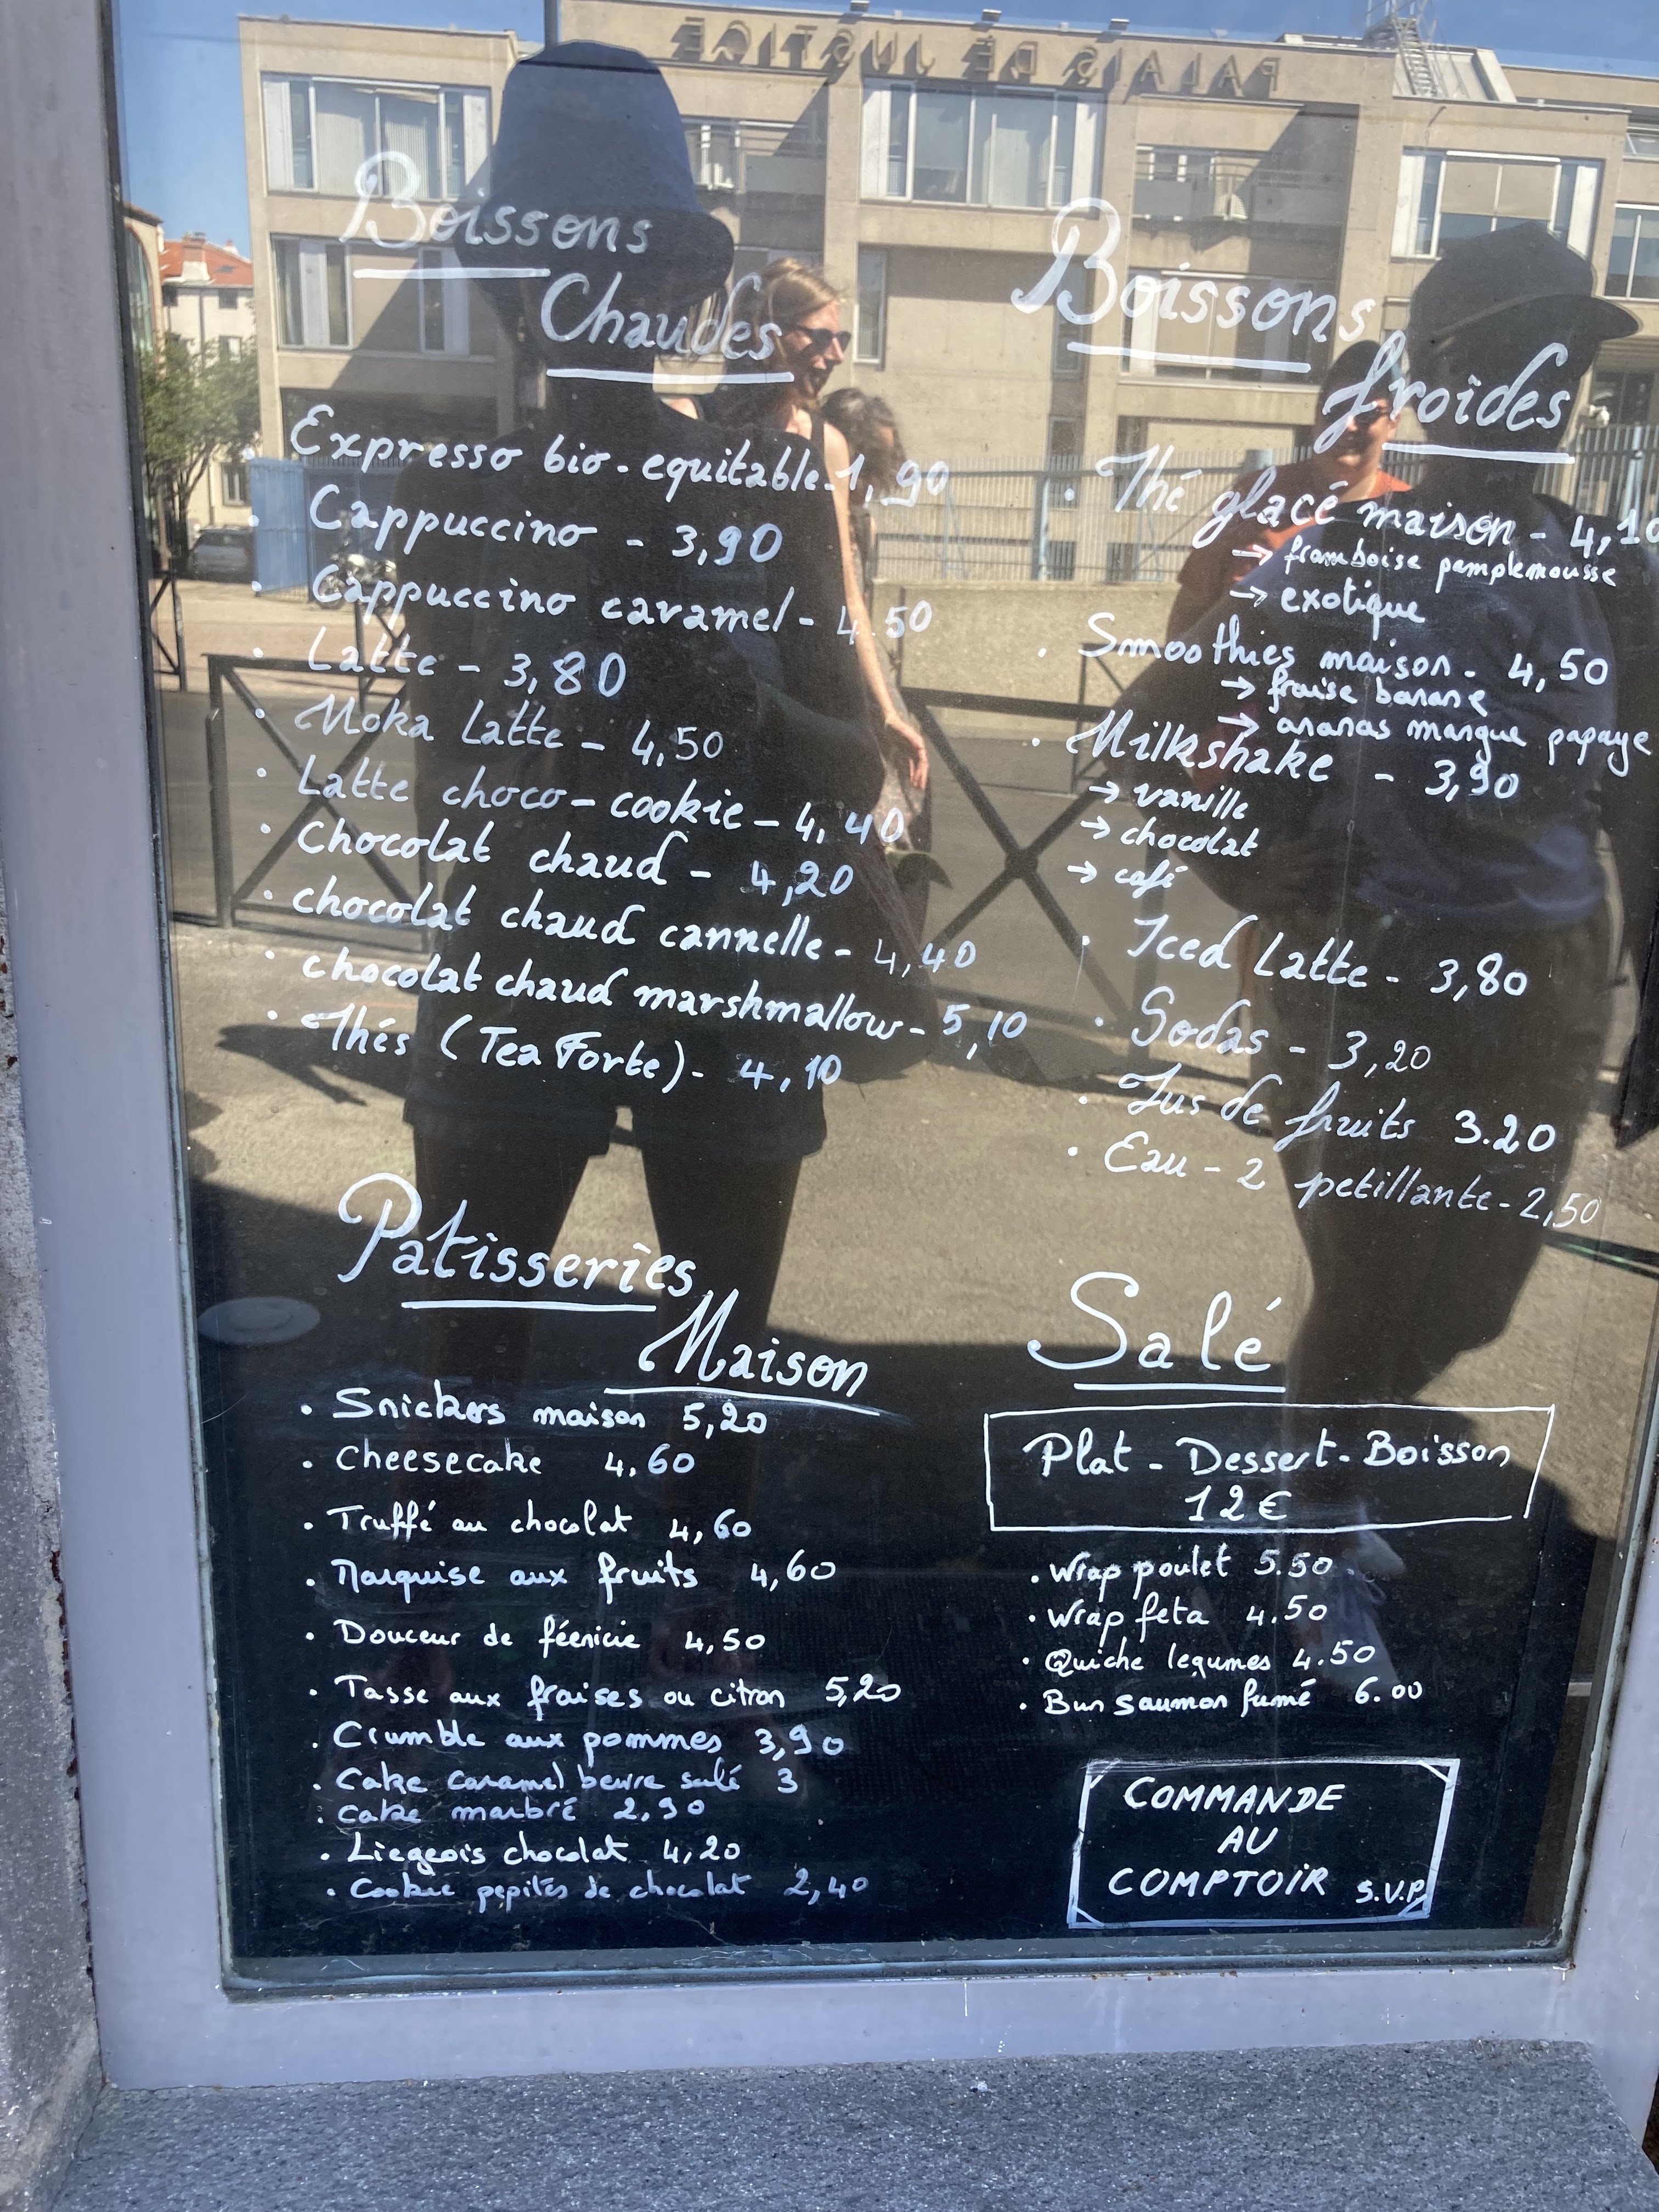 PALAIS DE JUSTICE
Boissons
Chaudes
Expresso bio-equitable-1,90
• Cappuccino - 3,90
• Cappuccino caramel - 4.50
• Latte - 3,80
• Moka Latte - 4,50
• Latte choco-cookie - 4,40
• Chocolat chaud - 4,20
• chocolat chaud cannelle - 4,40
• chocolat chaud marshmallow - 5,10
• Thés (Tea Forte) - 4,10
Boissons
froides
• Thé glacé maison - 4,10
→ framboise pamplemousse
→ exotique
• Smoothies maison - 4,50
→ fraise banane
→ ananas mangue papaye
• Milkshake - 3,90
→ vanille
→ chocolat
→ café
• Iced Latte - 3,80
• Sodas - 3,20
• Jus de fruits 3.20
• Eau - 2 petillante - 2,50
Patisseries
Maison
• Snickers maison 5,20
• Cheesecake 4,60
• Truffé au chocolat 4,60
• Marquise aux fruits 4,60
• Douceur de féenicie 4,50
• Tasse aux fraises ou citron 5,20
• Crumble aux pommes 3,90
• Cake caramel beurre salé 3
• Cake marbré 2,90
• Liegeois chocolat 4,20
• Cookie pepites de chocolat 2,40
Salé
Plat - Dessert - Boisson
12€
• Wrap poulet 5.50
• Wrap feta 4.50
• Quiche legumes 4.50
• Bun saumon fumé 6.00
COMMANDE
AU
COMPTOIR S.V.P.